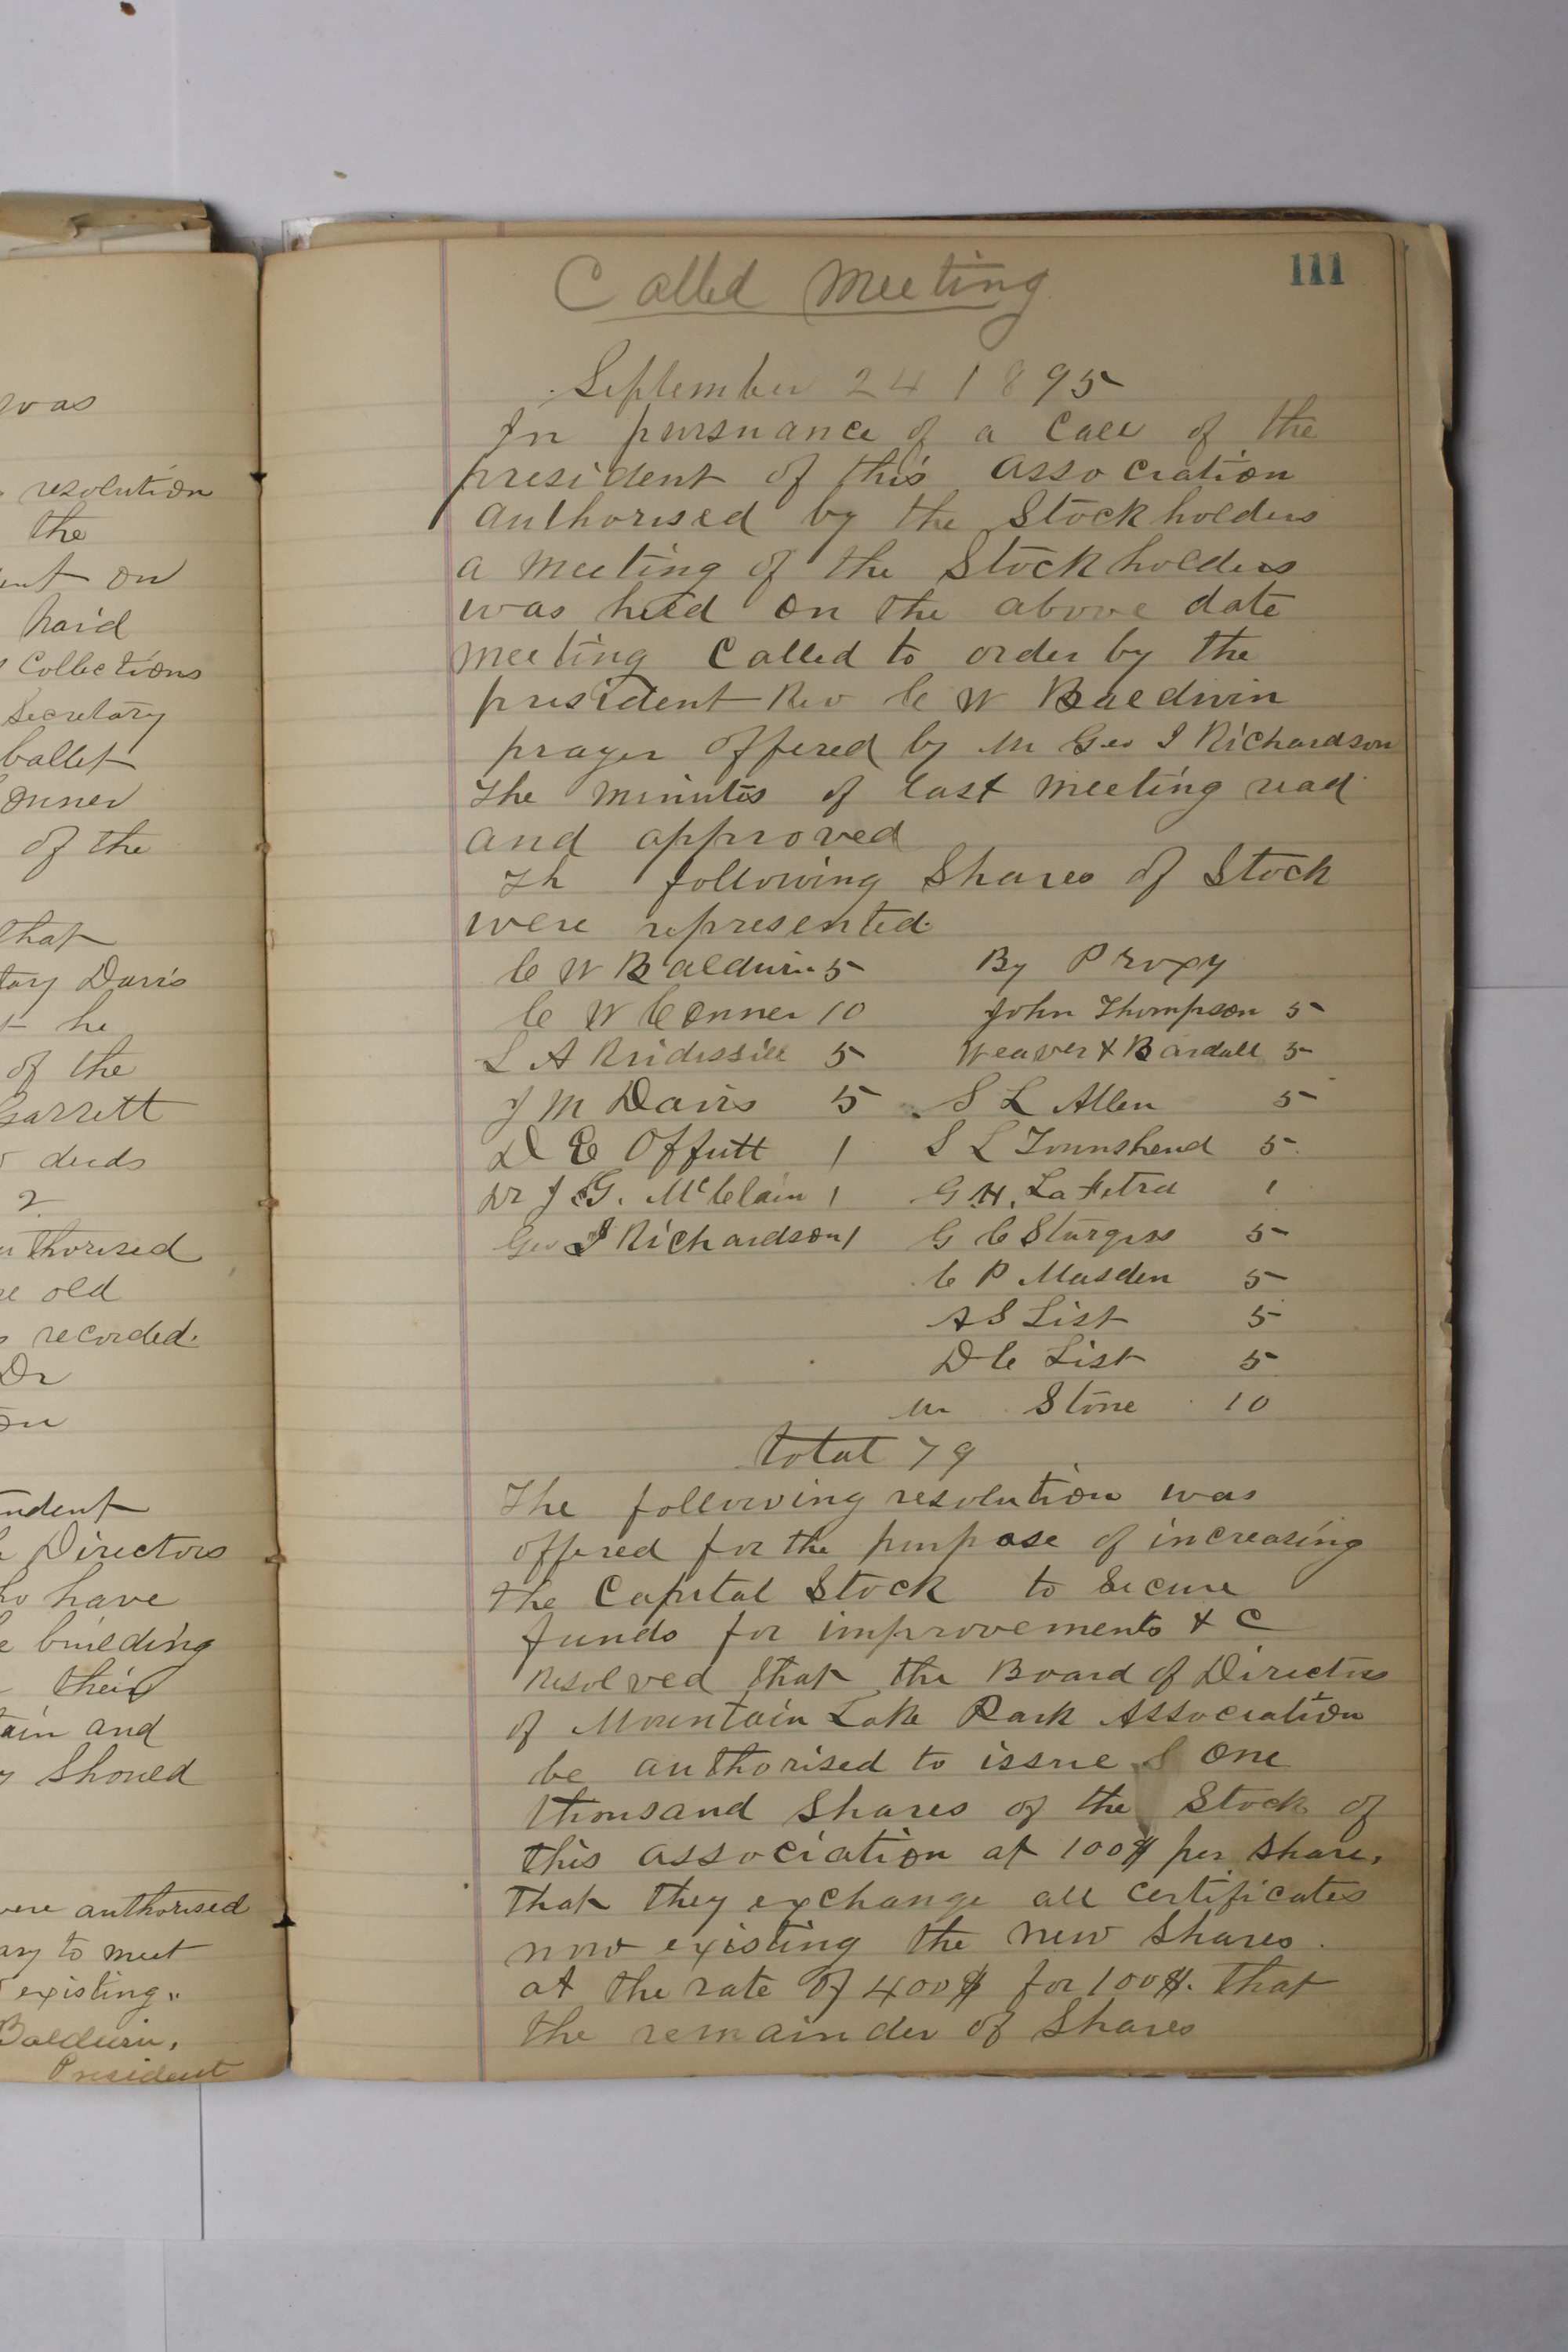 was
resolution
the
on
haid
Collections
Secretary
ballet
onner
of the
that
tary Davis
he
of the
Garrett
deeds
2
uthorised
old
recorded.
Dr
on
ndent
Directors
have
building
their
tain and
should
were authorised
ary to meet
existing"
Baldwin,
President
111
Called Meeting
September 24 1895
In pursuance of a Call of the
president of this Association
authorised by the Stockholders
a meeting of the Stockholders
was held on the above date
meeting Called to order by the
president Rev C W Baldwin
prayer offered by Mr Geo I Richardson
The minutes of last meeting read
and approved
Th following Shares of Stock
were represented.
C W Baldwin 5 By Proxy
C W Conner 10 John Thompson 5
L A Rudisill 5 Weaver & Bardall 5
J M Davis 5 S L Allen 5
D E Offutt 1 S L Townshend 5
Dr J G. McClain 1 G H. La Fetra 1
Geo I Richardson 1 G C Sturgiss 5
C P Masden 5
A S List 5
D C List 5
Mr Stone 10
total 79
The following resolution was
offered for the purpose of increasing
the Capital Stock to secure
funds for improvements & C
Resolved that the Board of Directors
of Mountain Lake Park Association
be authorised to issue One
thousand Shares of the Stock of
this association at 100$ per share,
that they exchange all certificates
now existing the new shares.
at the rate of 400$ for 100$. that
the remainder of Shares